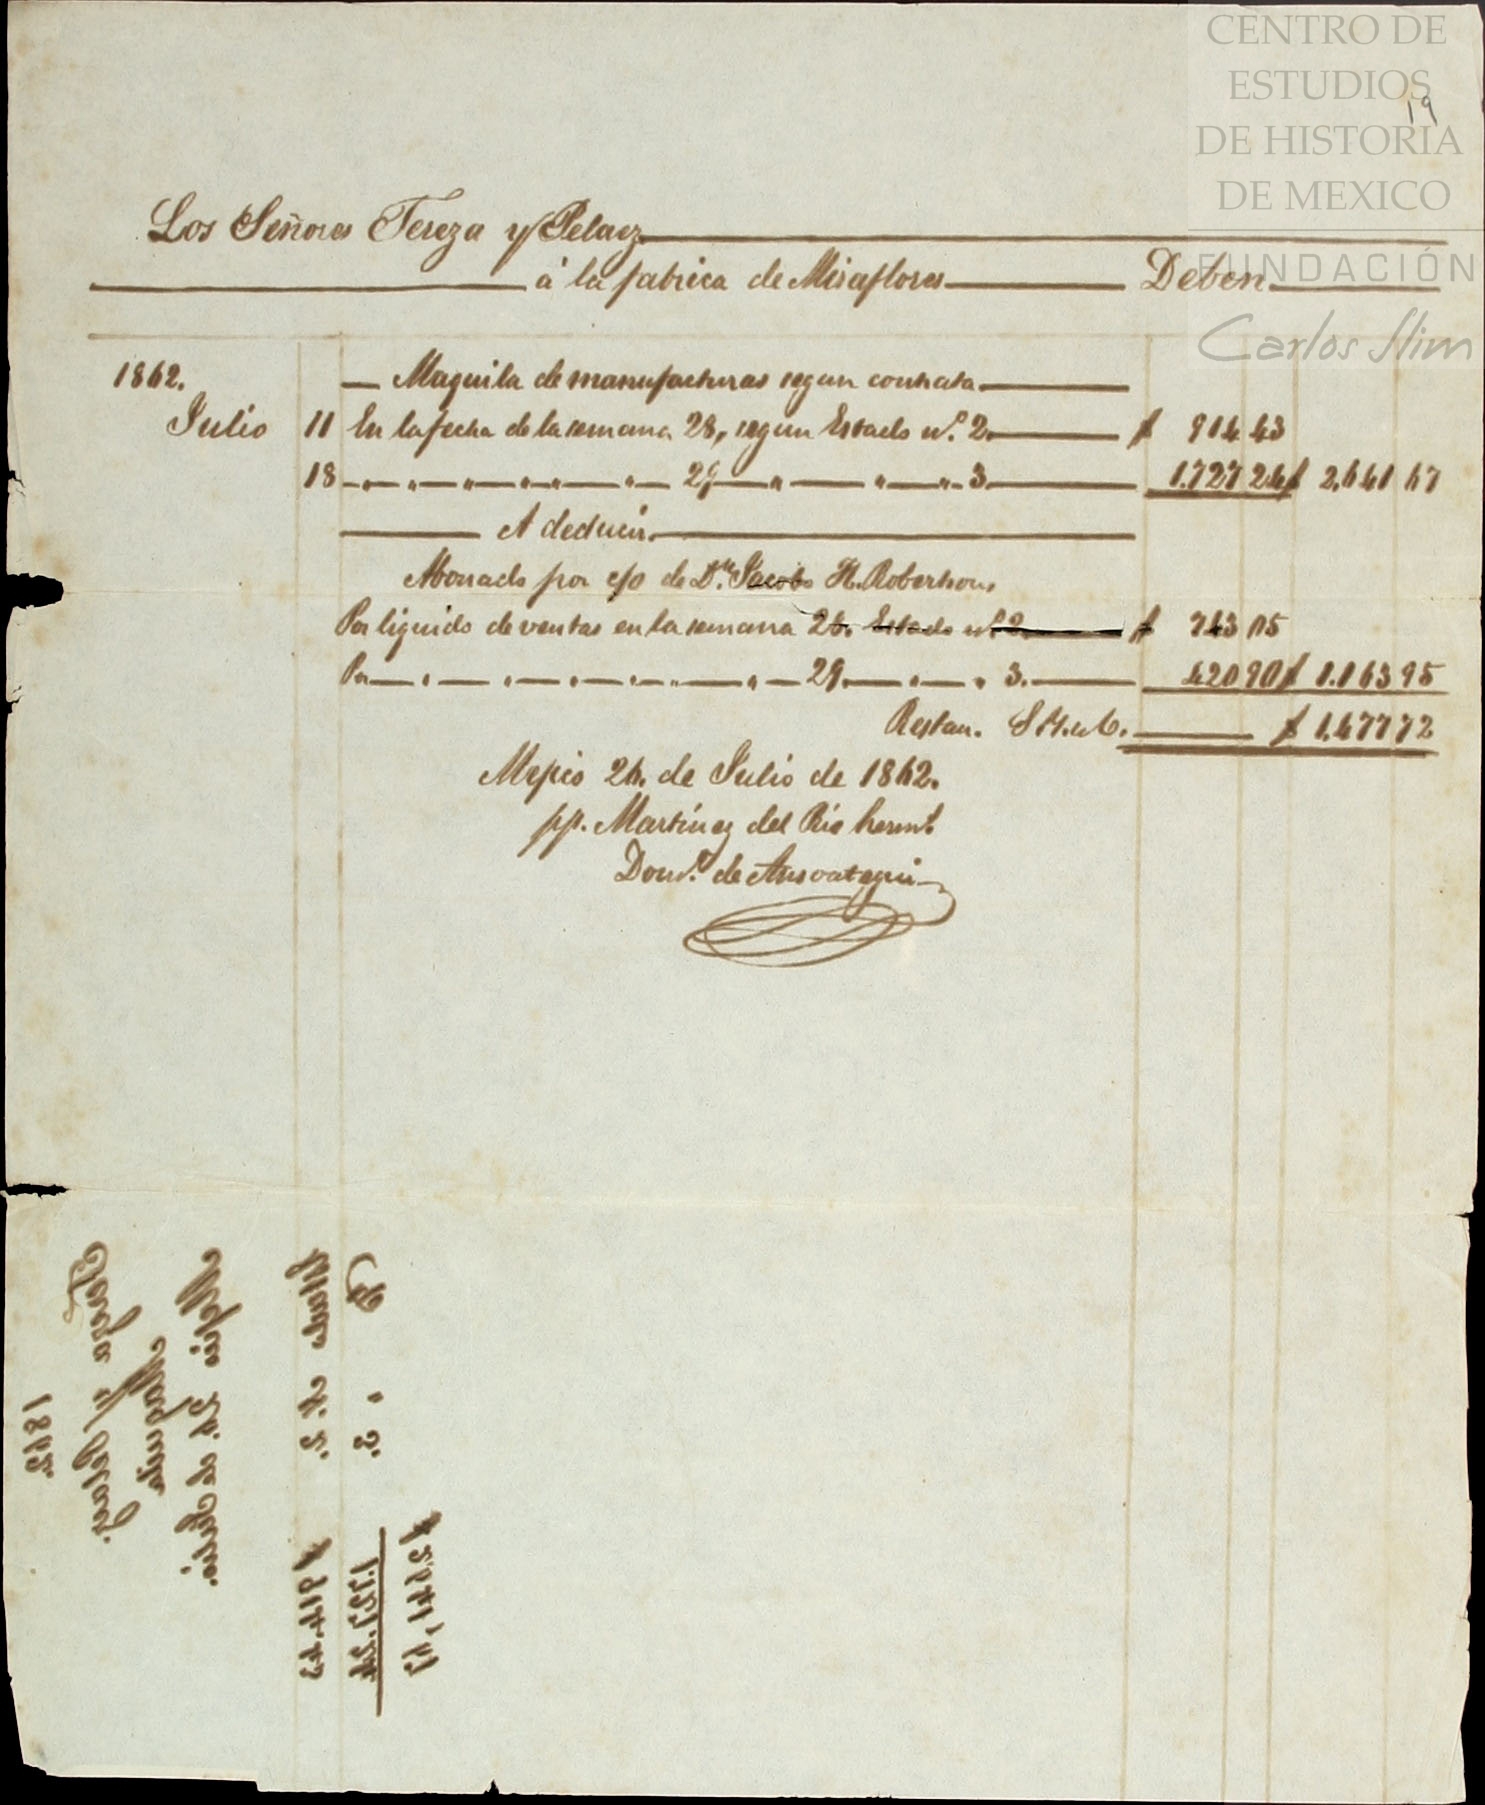 CENTRO DE
ESTUDIOS
DE HISTORIA
DE MEXICO
FUNDACIÓN
Carlos Slim
19
Los Señores Tereza y Pelaez
á la fabrica de Miraflores Deben
1862. Maquila de manufacturas segun contrata
Julio 11 En la fecha de la semana 28, segun Estado nº. 2 $ 914 43
18 " " " " " " 29 " " " 3 1.727 24 $ 2,641 67
A deducir
Abonado por c/o de Dn. Jacobo H. Robertson,
Por liquido de ventas en la semana 28. Estado nº 2 $ 743 05
Por " " " " " " 29. " " 3. 420 90 $ 1.163 95
Restan. $ 1,477 72
Mejico 26. de Julio de 1862.
pp. Martínez del Rio hermˢ.
Domº. de Ansoategui
1862.
Tereza y Pelaez.
Maquila
Mejico 26. de Julio.
Estado nº. 2. $ 914.43
" 3. 1.727.24
$ 2641,67